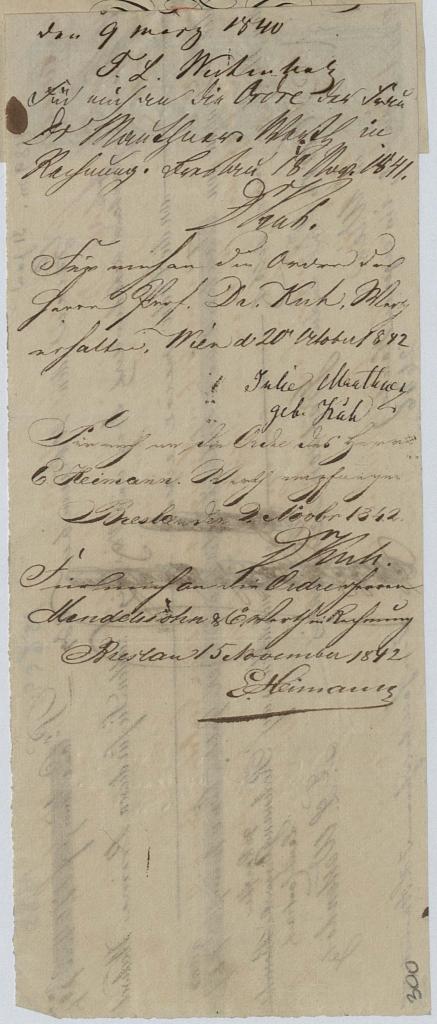 den 9 März 1840
T. L.
Für mich an die Ordre der Frau
Dr Mauthner Werth in
Rechnung. Breslau 18 Nov. 1841.
D Kuh.
Für mich an die Ordre des
Herrn Prof. Dr. Kuh, Werth
erhalten. Wien d. 20t October 1842
Julie Mauthner
geb. Kuh
Für mich an die Ordre des Herrn
E Heimann. Werth empfangen
Breslau den 2 Novbr 1842.
D Kuh.
Für mich an die Ordre Herren
Mendelssohn & Co Werth in Rechnung
Breslau 15 November 1842
E. Heimann
300